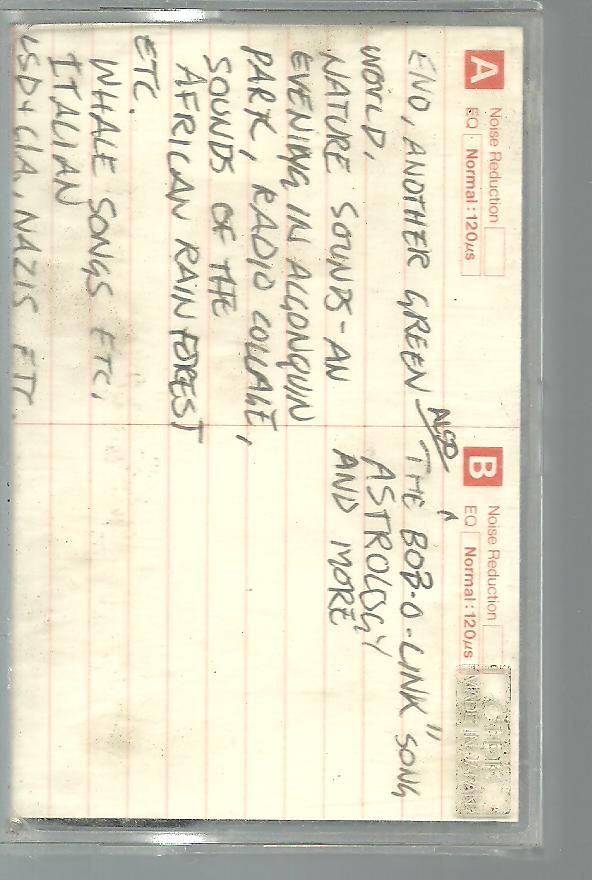 A
Noise Reduction
EQ Normal: 120µs
ENO, ANOTHER GREEN
WORLD,
NATURE SOUNDS - AN
EVENING IN ALGONQUIN
PARK, RADIO COLLAGE,
SOUNDS OF THE
AFRICAN RAIN FOREST
ETC.
WHALE SONGS ETC,
ITALIAN
LSD + CIA, NAZIS ETC.
B
Noise Reduction
EQ Normal: 120µs
ALSO
THE BOB-O-LINK" SONG
ASTROLOGY
AND MORE
TDK
MADE IN JAPAN